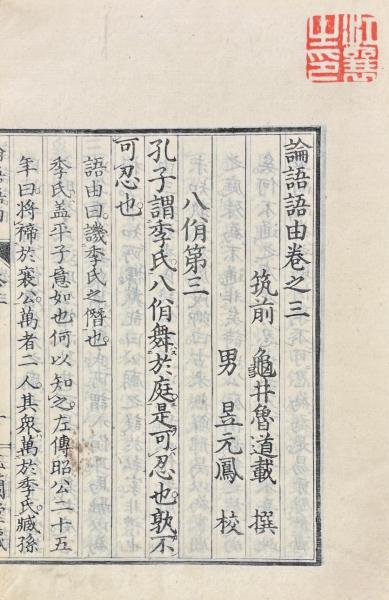 論語語由卷之三
筑前 龜井魯道載 撰
男 昱元鳳 校
八佾第三
孔子謂季氏八佾舞於庭是可忍也孰不
可忍也
語由曰譏季氏之僭也
季氏蓋平子意如也何以知之左傳昭公二十五
年曰將禘於襄公萬者二人其衆萬於季氏臧孫